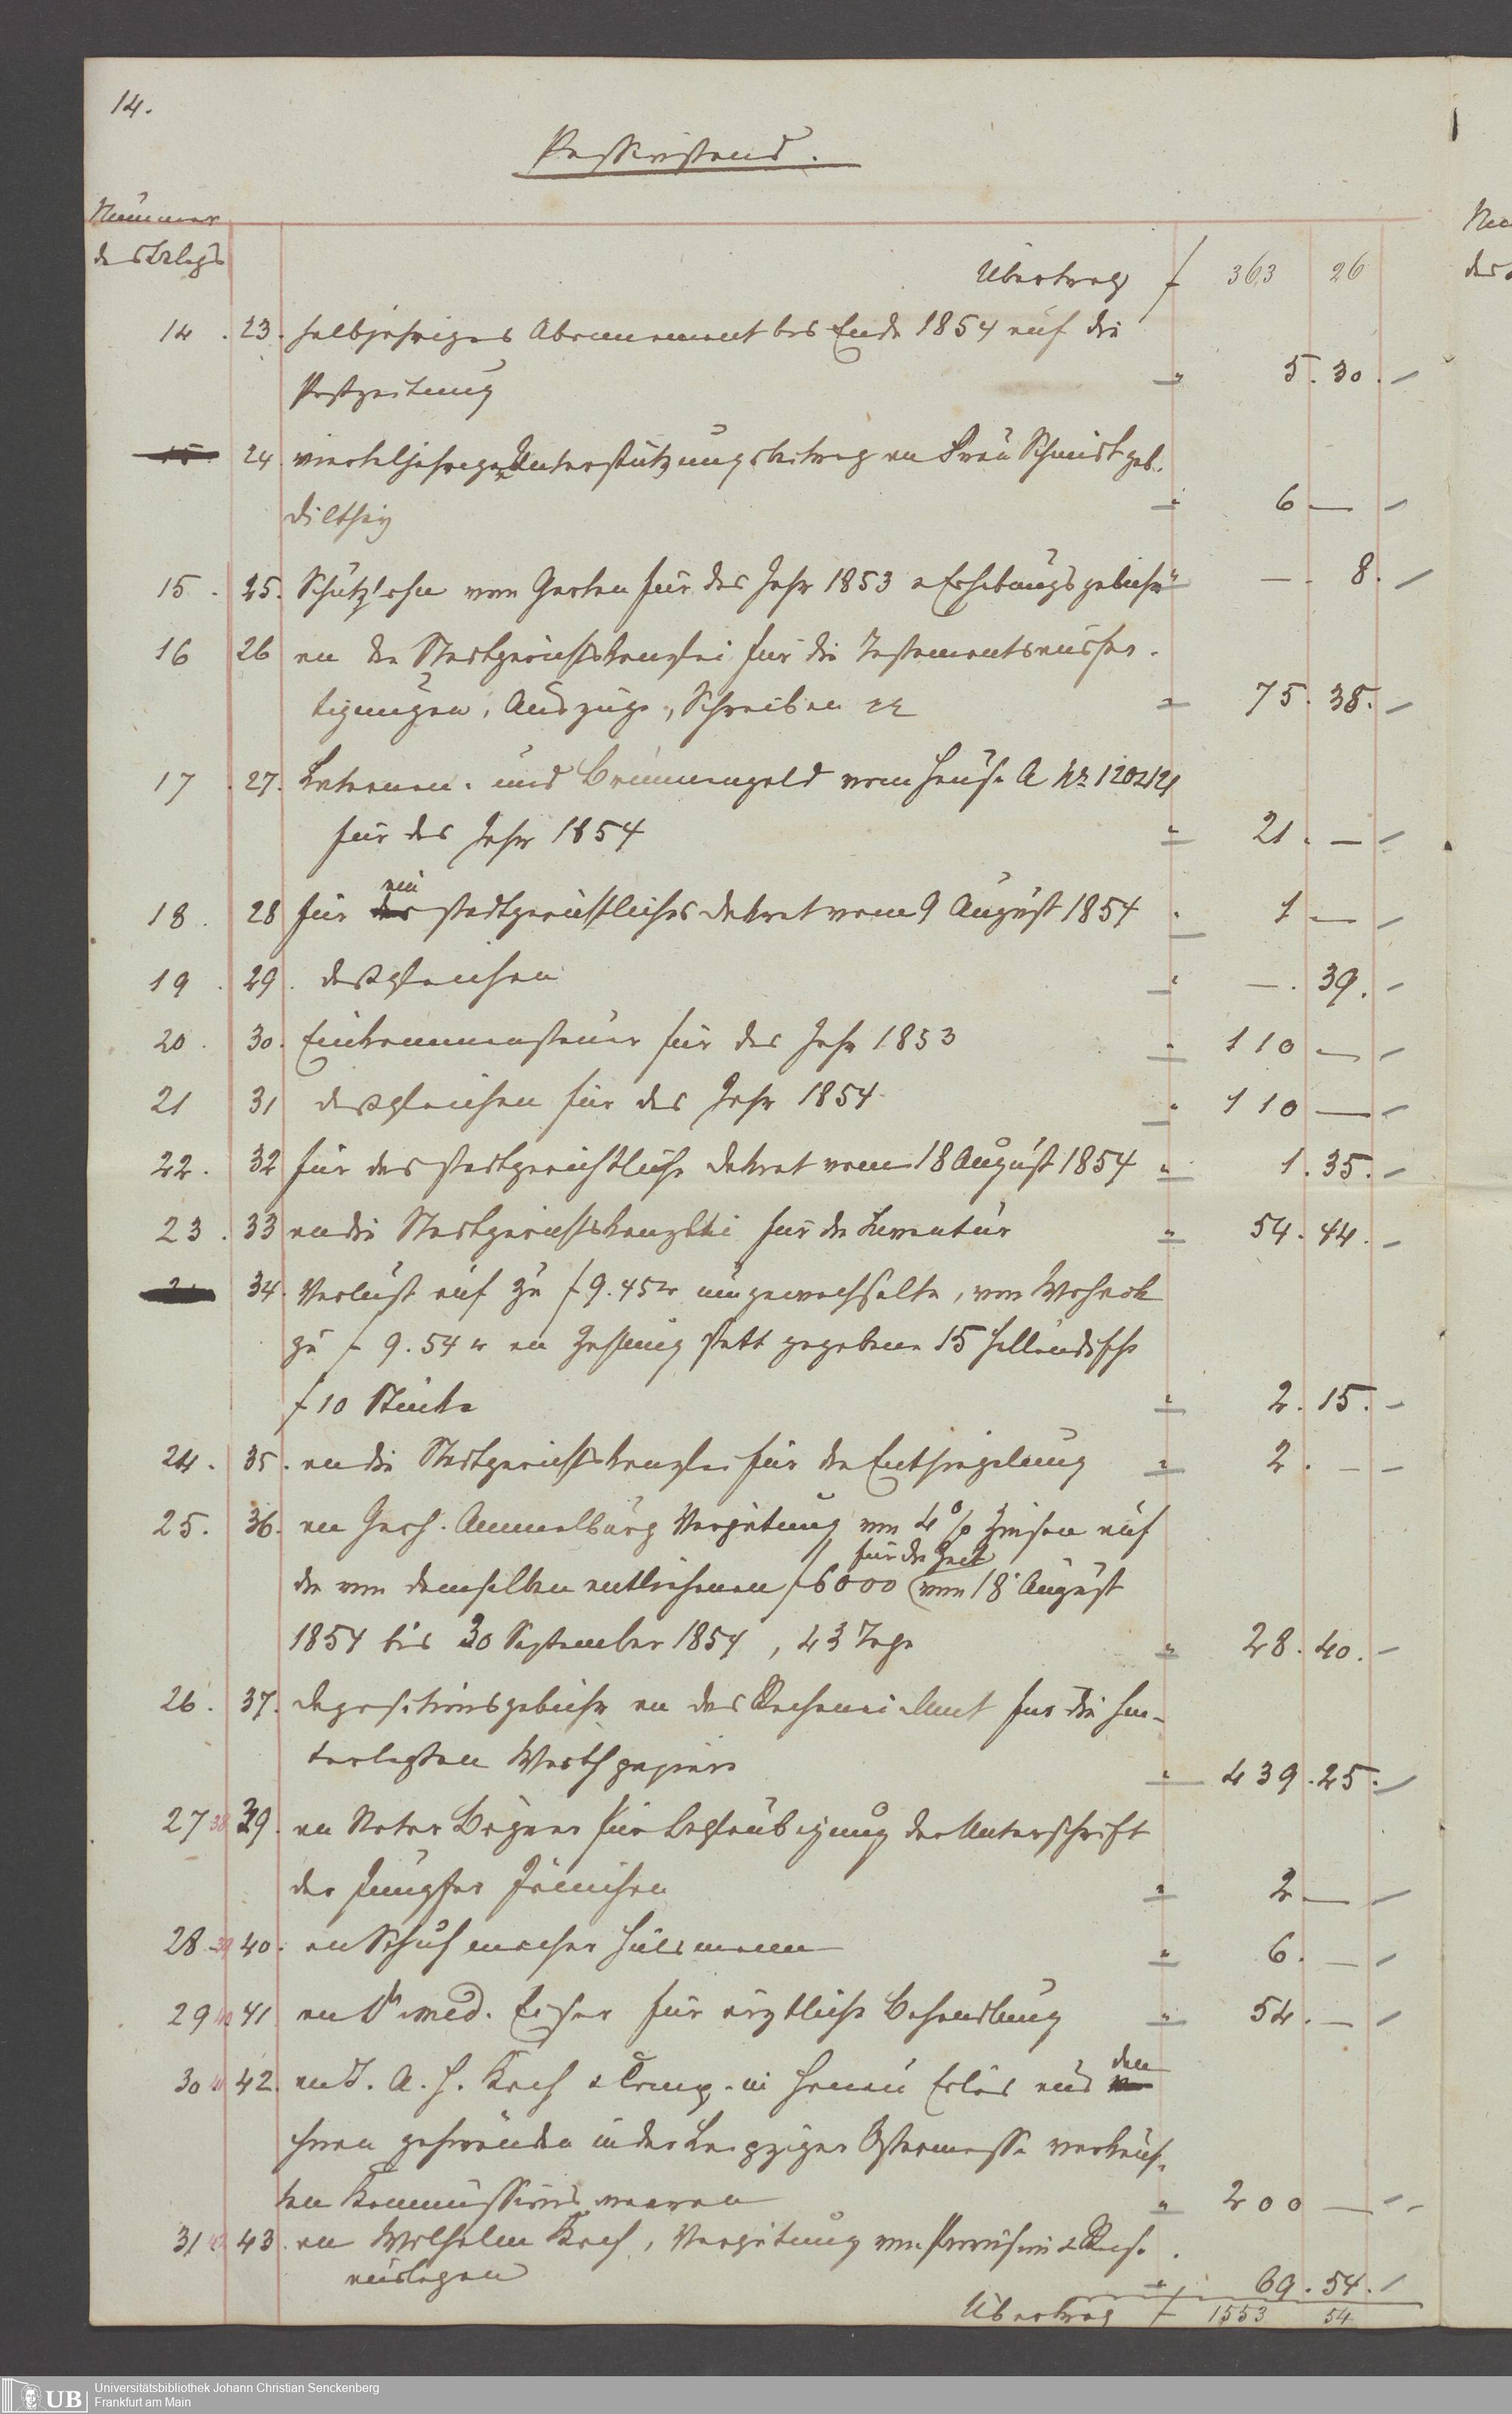 14.
Passivstand.
Nummer
des Belegs
Übertrag f 363 26
14. 23. halbjähriges Abonnement bis Ende 1854 auf die
Postzeitung " 5. 30. –
24 vierteljähriger Unterstützungsbeitrag an Frau Schmidt geb.
Dilthey " 6 — –
15. 25. Schützlohn vom Garten für das Jahr 1853 & Erhebungsgebühr " —. 8. –
16 26 an die Stadtgerichtskanzlei für die Testamentsausfer-
tigungen, Auszüge, Schreiben " 75. 38. –
17. 27. Laternen- und Brunnengeld vom Hause A No 120 & 121
für das Jahr 1854 " 21. — –
18. 28 für ein stadtgerichtliches Dekret vom 9 August 1854 " 1 — –
19. 29. deßgleichen " —. 39. –
20. 30. Einkommensteuer für das Jahr 1853 " 110 — –
21 31 deßgleichen für das Jahr 1854 " 110 — –
22. 32 für das stadtgerichtliche Dekret vom 18 August 1854 " 1. 35. –
23. 33 an die Stadtgerichtskanzlei für die Inventur " 54. 44. –
34. Verlust auf zu f 9. 45 kr umgewechselte, von
zu f 9. 54 kr an Zahlung statt gegebene 15 holländische
f 10 Stücke " 2. 15. –
24. 35. an die Stadtgerichtskanzlei für die Entsiegelung " 2. — –
25. 36. an Gerh. Ammelburg Vergütung von 4 % Zinsen auf
die von demselben entliehenen f 6000 für die Zeit vom 18 August
1854 bis 30 September 1854, 43 Tage " 28. 40. –
26. 37. Depositionsgebühr an das Rechnei Amt für die hin-
terlegten Werthpapiere " 439. 25. –
27 38 39. an Notar für Beglaubigung der Unterschrift
der Jungfer " 2 — –
28 – 39 40. an Schuhmacher Hülsmann " 6. — –
29 40 41 an Dr med. für ärztliche Behandlung " 54. — –
30 41 42. an J. A. H. Koch & Comp. in Hanau Erlös aus den
in der Leipziger Ostermesse verkauf-
ten Kommissionswaaren " 200 — –
31 42 43. an Wilhelm Koch, Vergütung von Provision & Reise
auslagen " 69. 54. –
Übertrag f 1553 54
UB Universitätsbibliothek Johann Christian Senckenberg
Frankfurt am Main